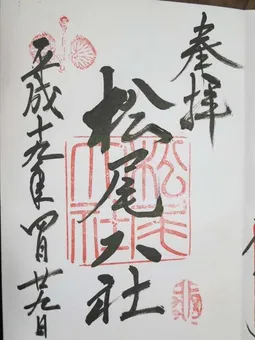 奉拝
松尾大社
平成十九年四月廿九日
松尾大社